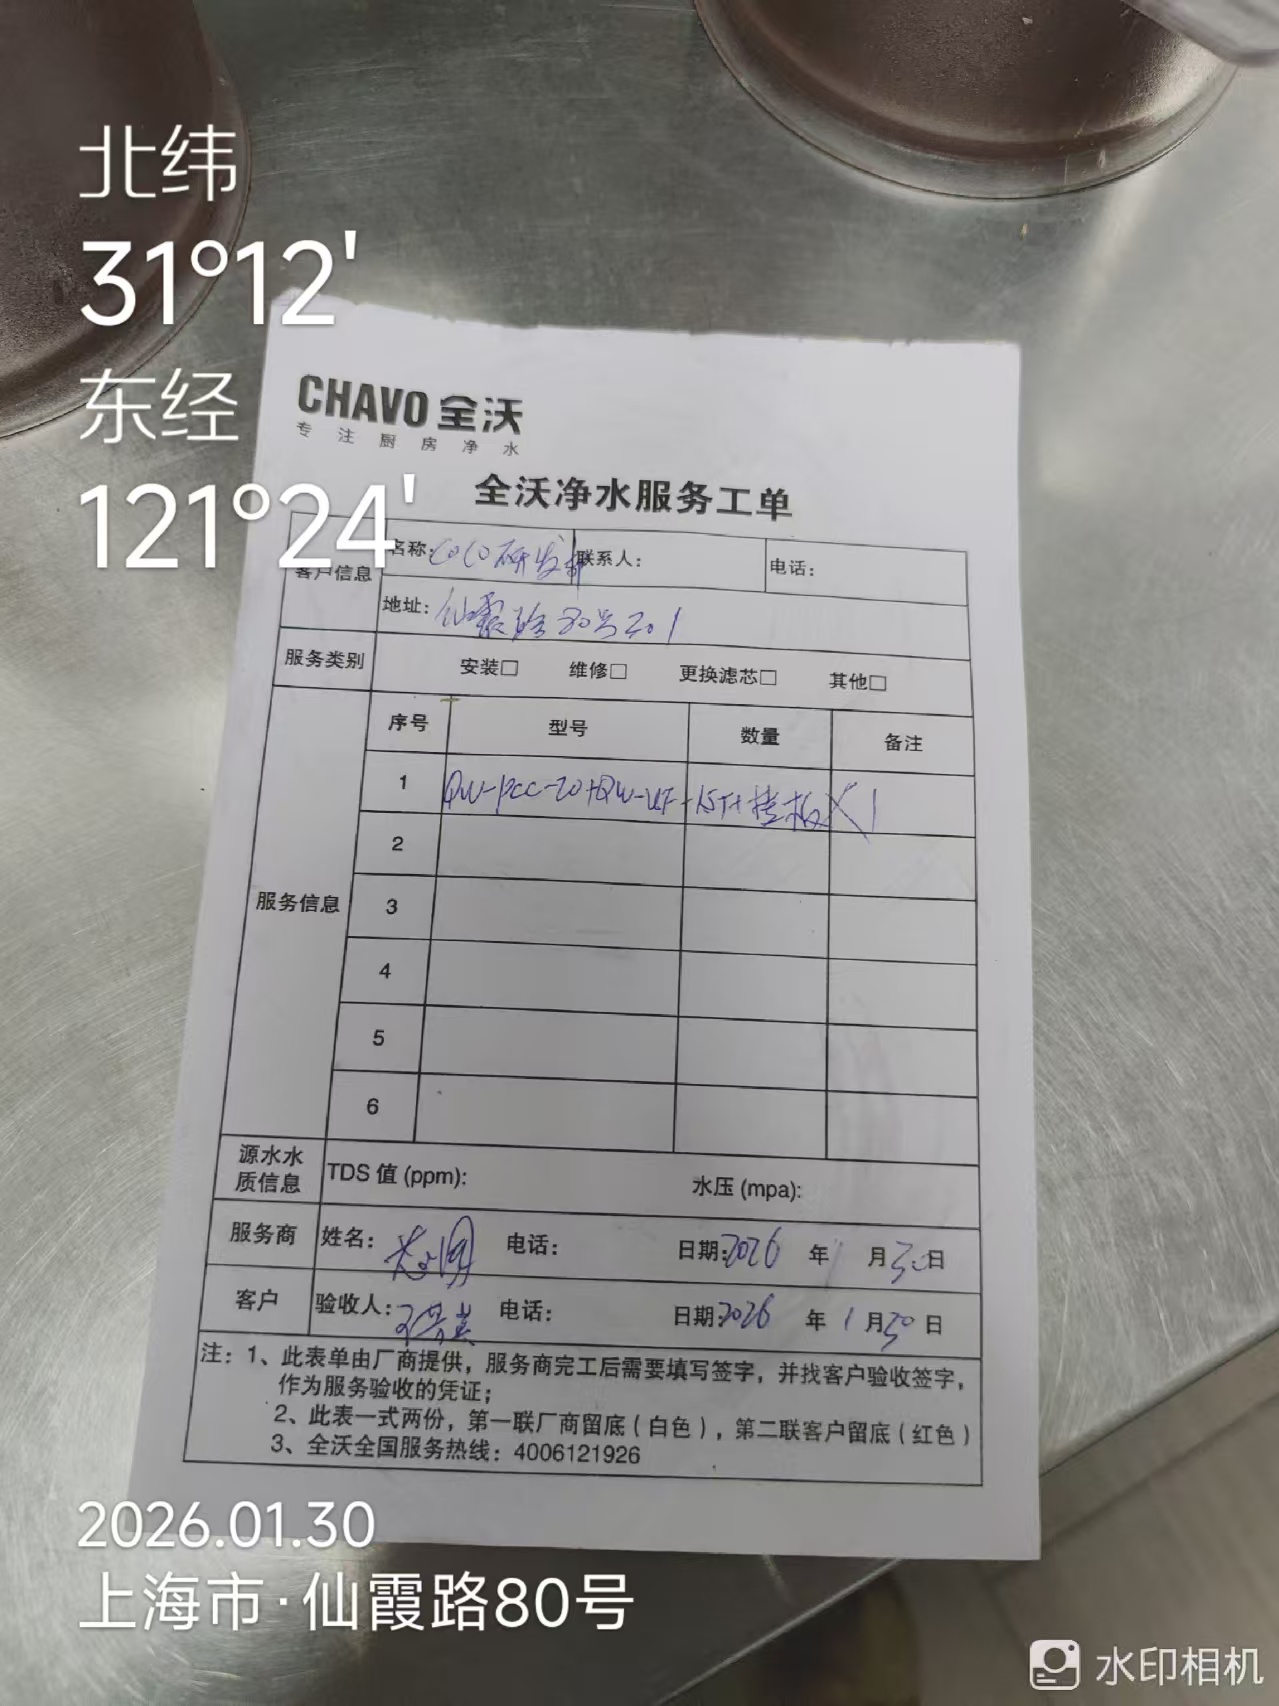 北纬
31°12'
东经
121°24'
CHAVO 全沃
专注厨房净水
全沃净水服务工单
客户信息 名称: COCO研发部 联系人: 电话:
地址: 仙霞路80号201
服务类别 安装□ 维修□ 更换滤芯□ 其他□
服务信息 序号 型号 数量 备注
1 QW-PCC-20+QW-UF-15T+挂板X1
2
3
4
5
6
源水水质信息 TDS 值 (ppm): 水压 (mpa):
服务商 姓名: 电话: 日期: 2026 年 1 月 30 日
客户 验收人: 电话: 日期: 2026 年 1 月 30 日
注: 1、此表单由厂商提供，服务商完工后需要填写签字，并找客户验收签字，
作为服务验收的凭证；
2、此表一式两份，第一联厂商留底（白色），第二联客户留底（红色）
3、全沃全国服务热线：4006121926
2026.01.30
上海市·仙霞路80号
水印相机